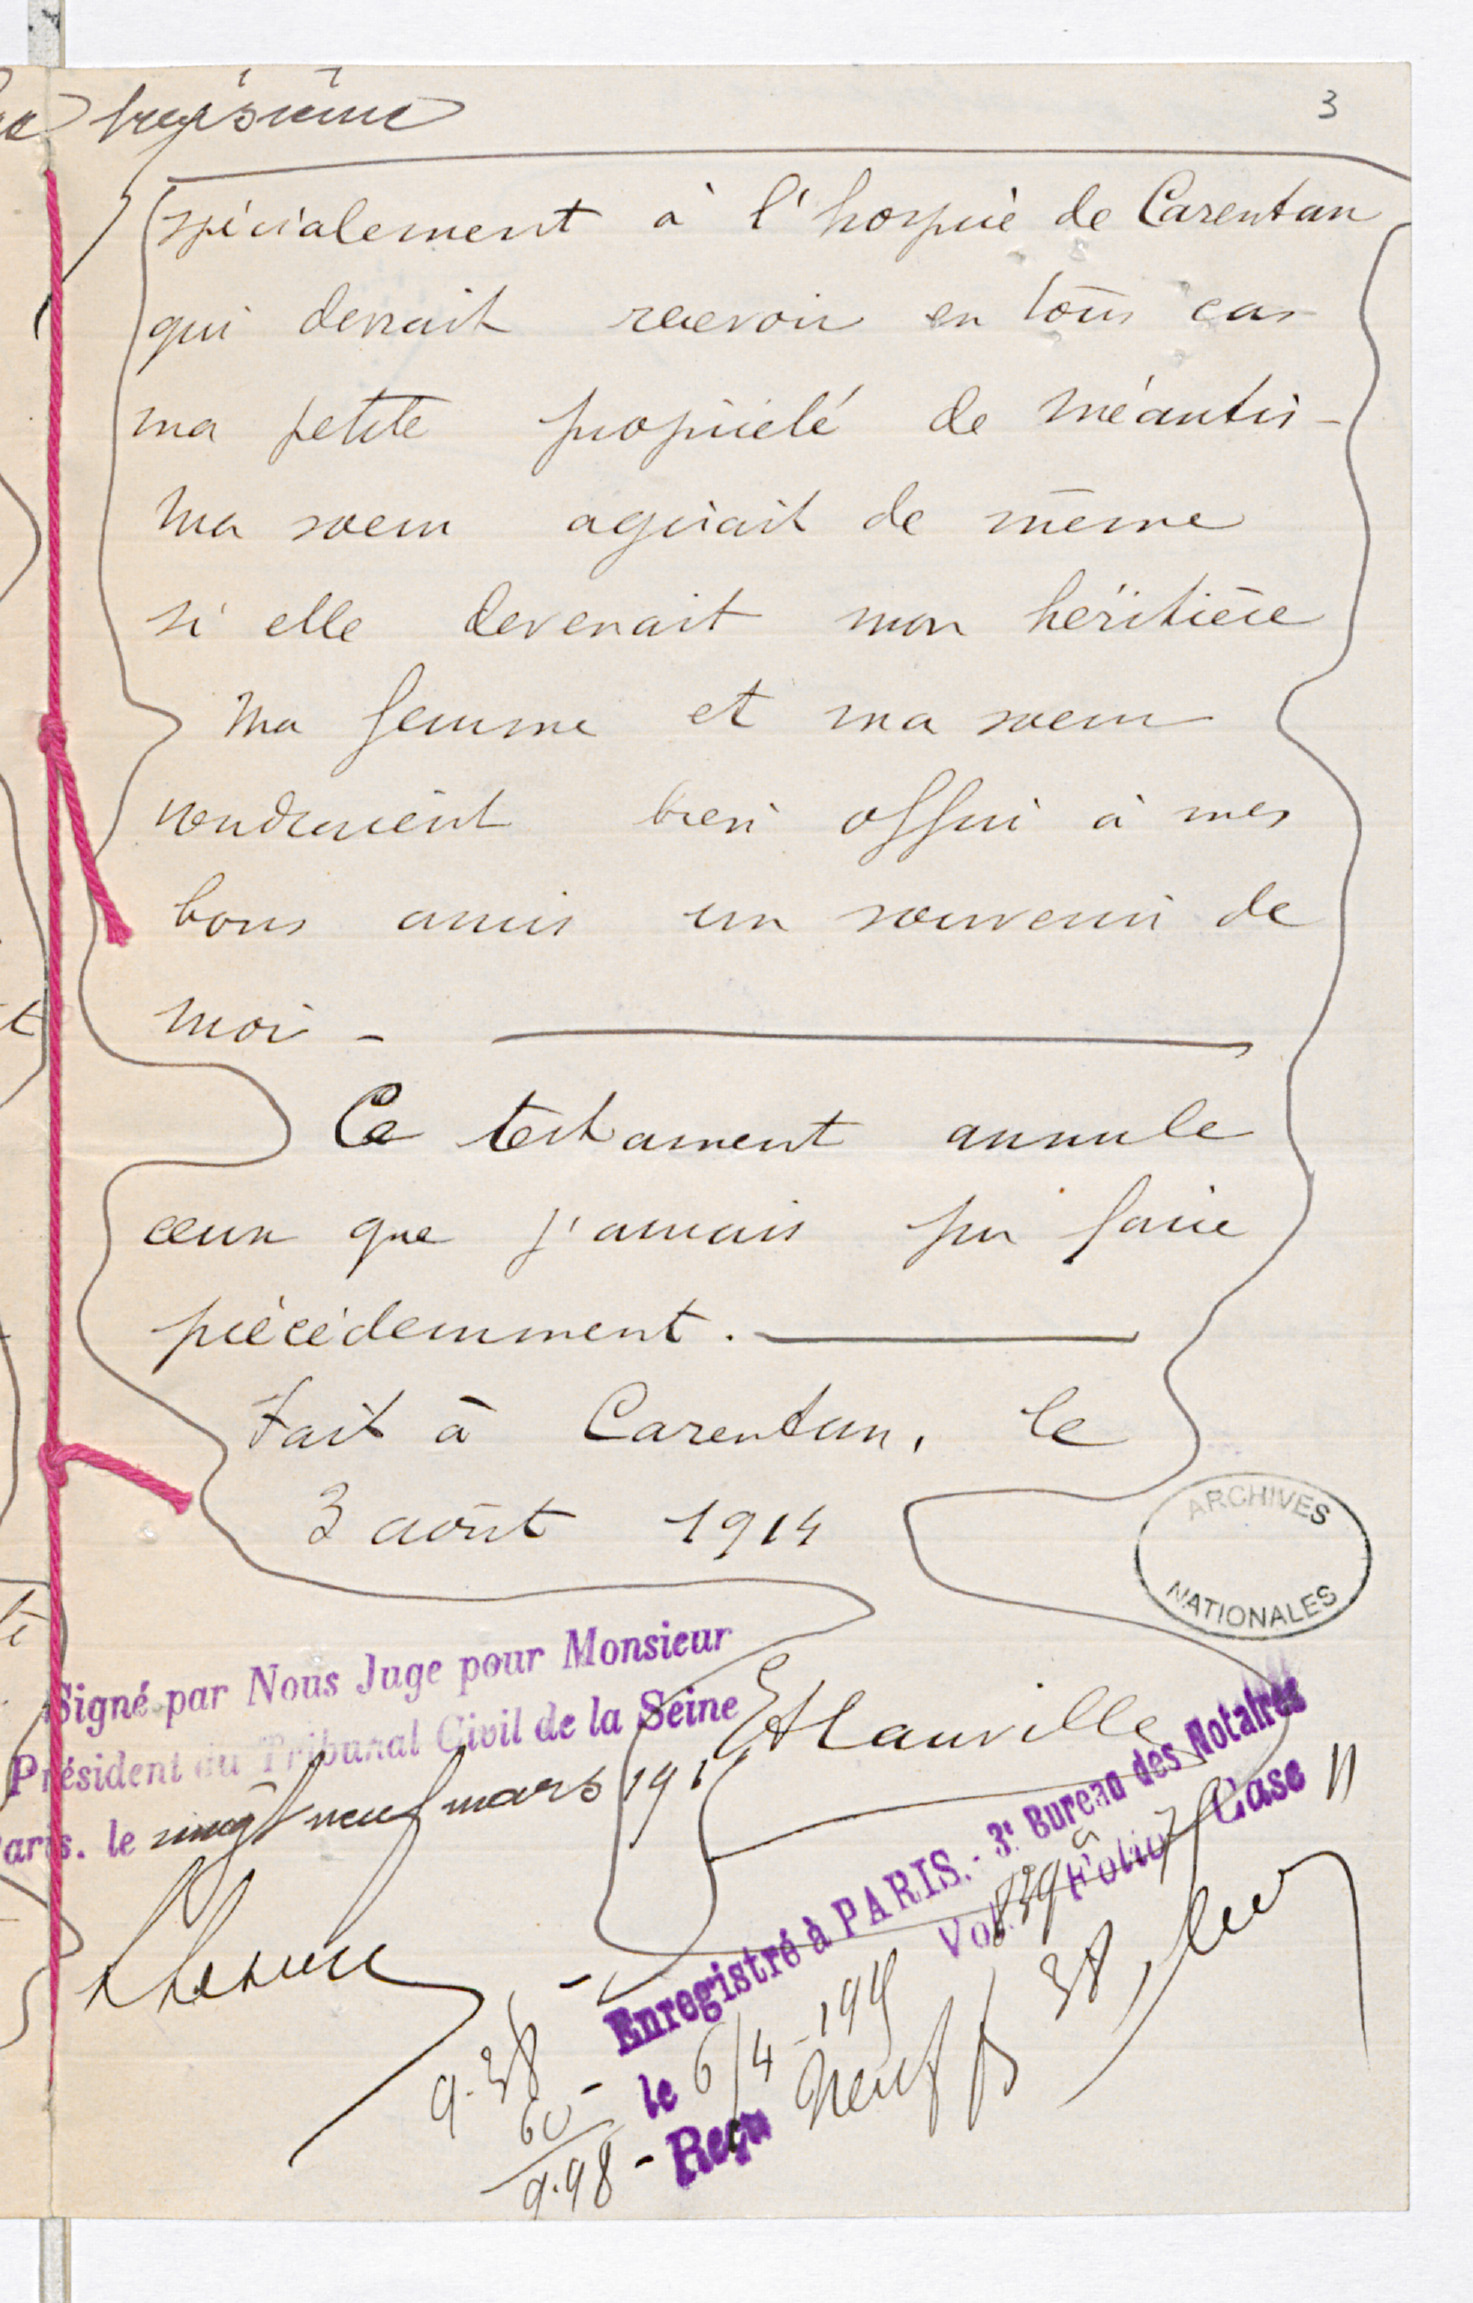 troisième
3
spécialement à l'hospice de Carentan
qui devrait recevoir en tous cas
ma petite propriété de Méautis -
Ma soeur agirait de même
si elle devenait mon héritière
Ma femme et ma soeur
voudraient bien offrir à mes
bons amis un souvenir de
moi -
Ce testament annule
ceux que j'aurais pu faire
précédemment.
Fait à Carentan, le
3 août 1914
ARCHIVES
NATIONALES
Hauville
Signé par Nous Juge pour Monsieur
Président du Tribunal Civil de la Seine
Paris. le vingt neuf mars 191
Enregistré à PARIS. - 3e Bureau des Notaires
Vol. 839 a Folio 7 Case 11
le 6/4 - 191
Reçu Neuf f 38
9.38
60
9.98